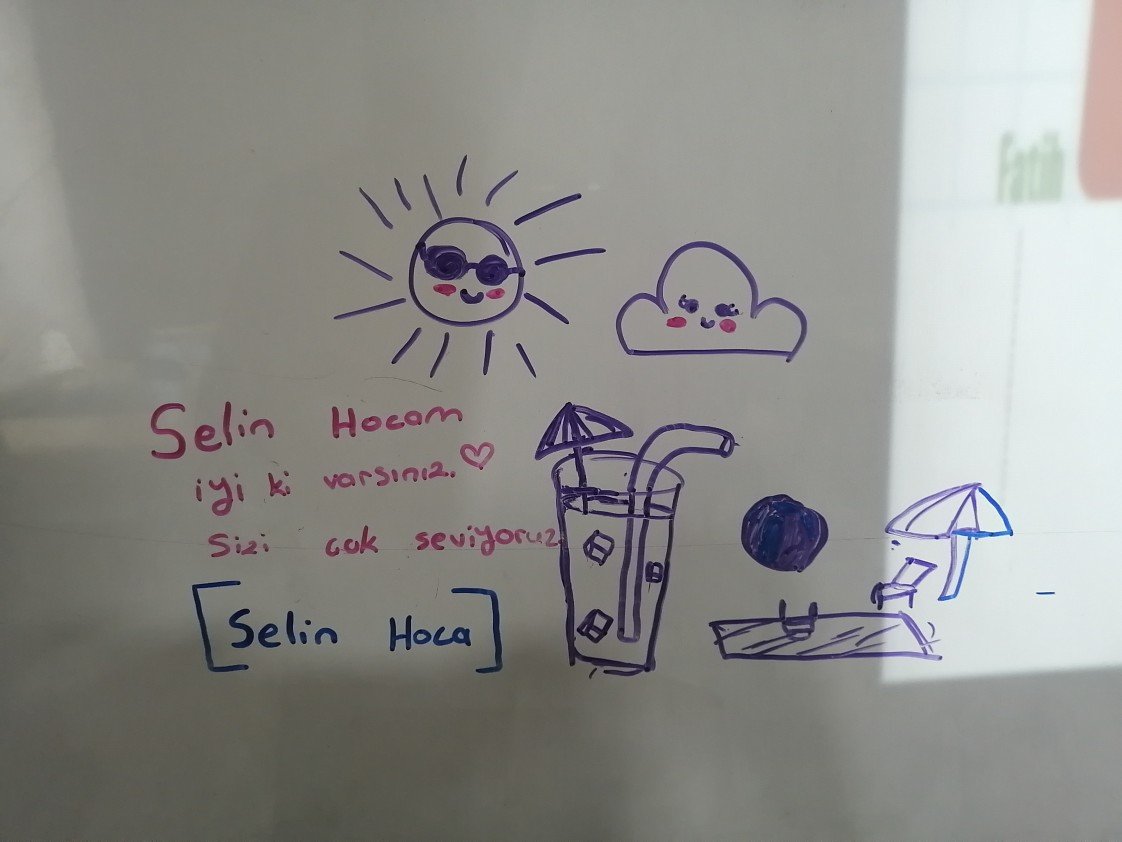 Fatih
Selin Hocam
iyi ki varsınız.
Sizi çok seviyoruz
[Selin Hoca]